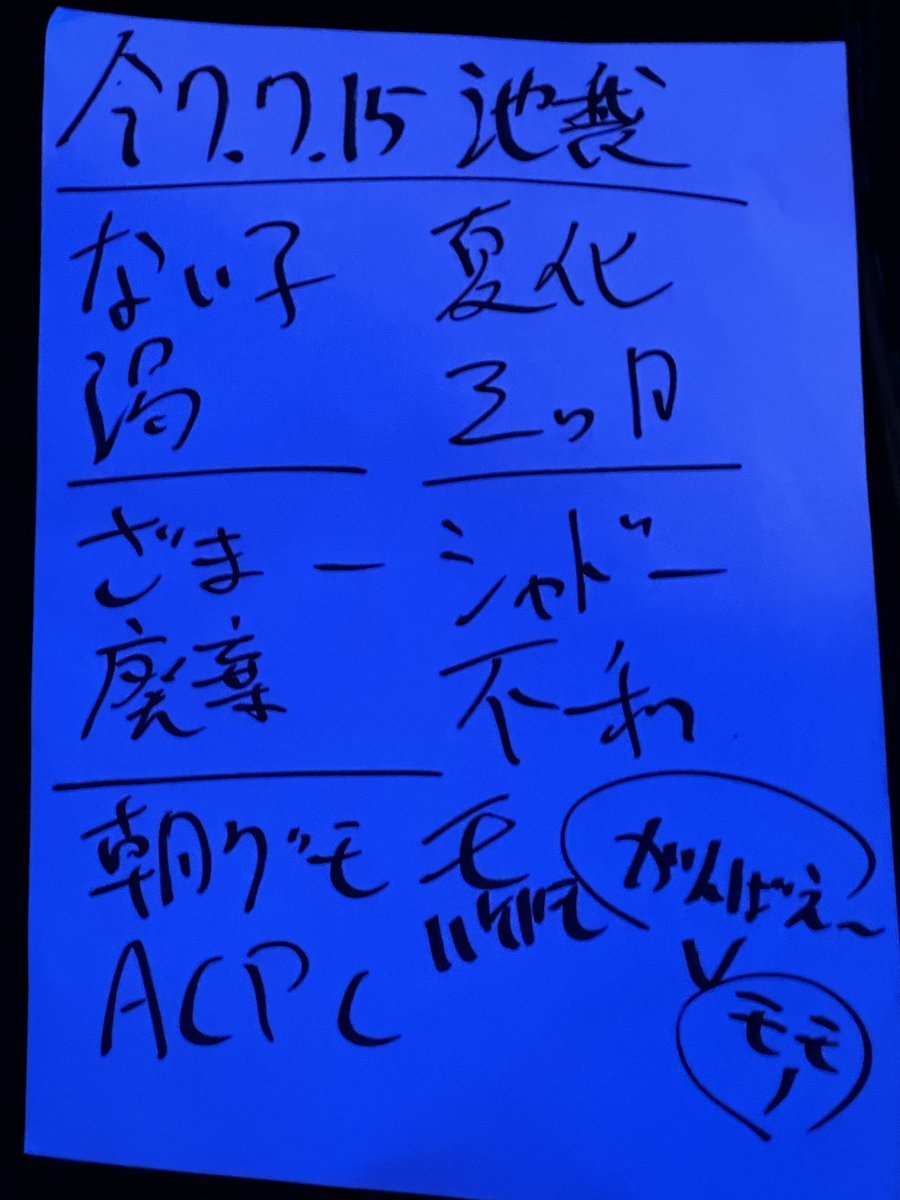 今7.7.15 池袋
ない子 夏化
渇 三ヶ月
ざまー シャドー
廃棄 不和
朝グモ モ
ACPC
がんばえ〜
モモノ